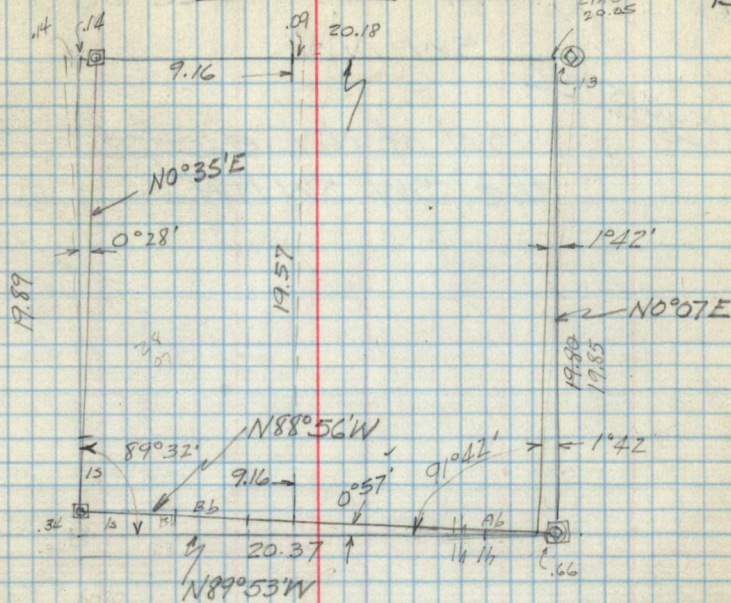 .14
.14
.09
20.18
20.05
9.16
.13
N0°35'E
0°28'
1°42'
19.89
19.57
N0°07E
19.80
19.85
N88°56'W
89°32'
9.16
0°57'
91°42'
1°42
1s
.34
1s
Bb
Ab
1h
1h
20.37
.66
N89°53'W